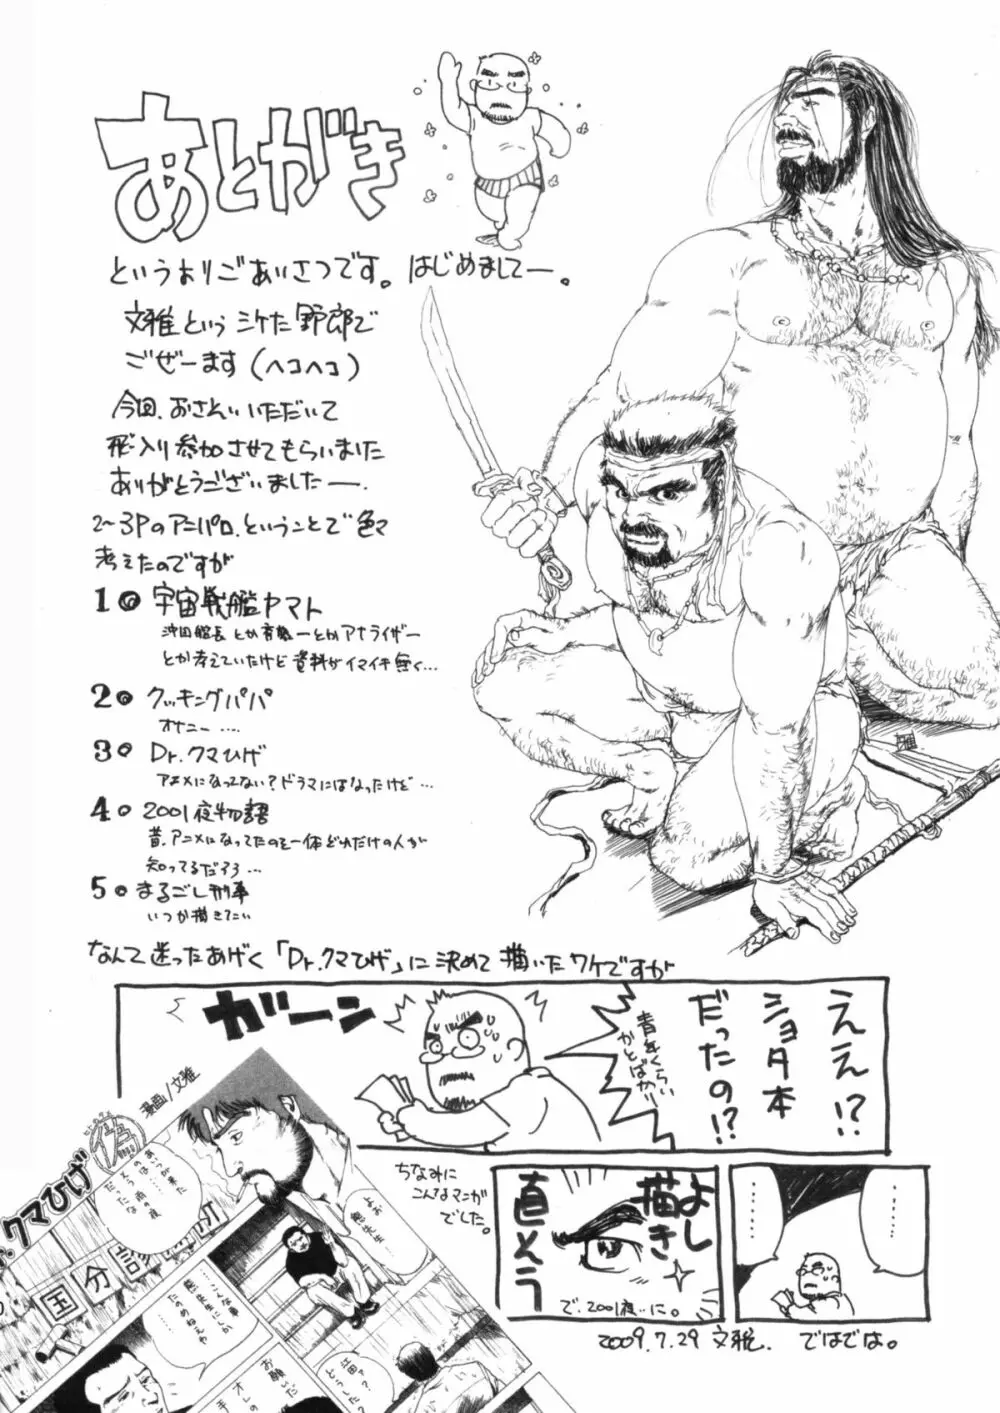 あとがき
というよりごあいさつです。はじめましてー。
文雅というシケた野郎で
ごぜーます(ヘコヘコ)
今回、おさそいいただいて
飛入り参加させてもらいました
ありがとうございましたー。
2〜3Pのアニパロ、ということで色々
考えたのですが
1。宇宙戦艦ヤマト
沖田艦長とか真田さんとかアナライザー
とか考えていたけど資料がイマイチ無く…
2。クッキングパパ
オナニー‥‥
3。Dr.クマひげ
アニメになってない?ドラマにはなったけど…
4。2001夜物語
昔、アニメになってたのを一体どれだけの人が
知ってるだろう…
5。まるごし刑事
いつか描きたい
なんて迷ったあげく「Dr.クマひげ」に決めて描いたワケですが
ええ!?
ショタ本
だったの!?
青年くらい
かとばかり
ガーン
漫画/文雅
偽
クマひげ
国分診
ちなみに
こんなマンガ
でした。
よし
描き
直そう
で、2001夜に。
………
………
2009.7.29 文雅
ではでは。